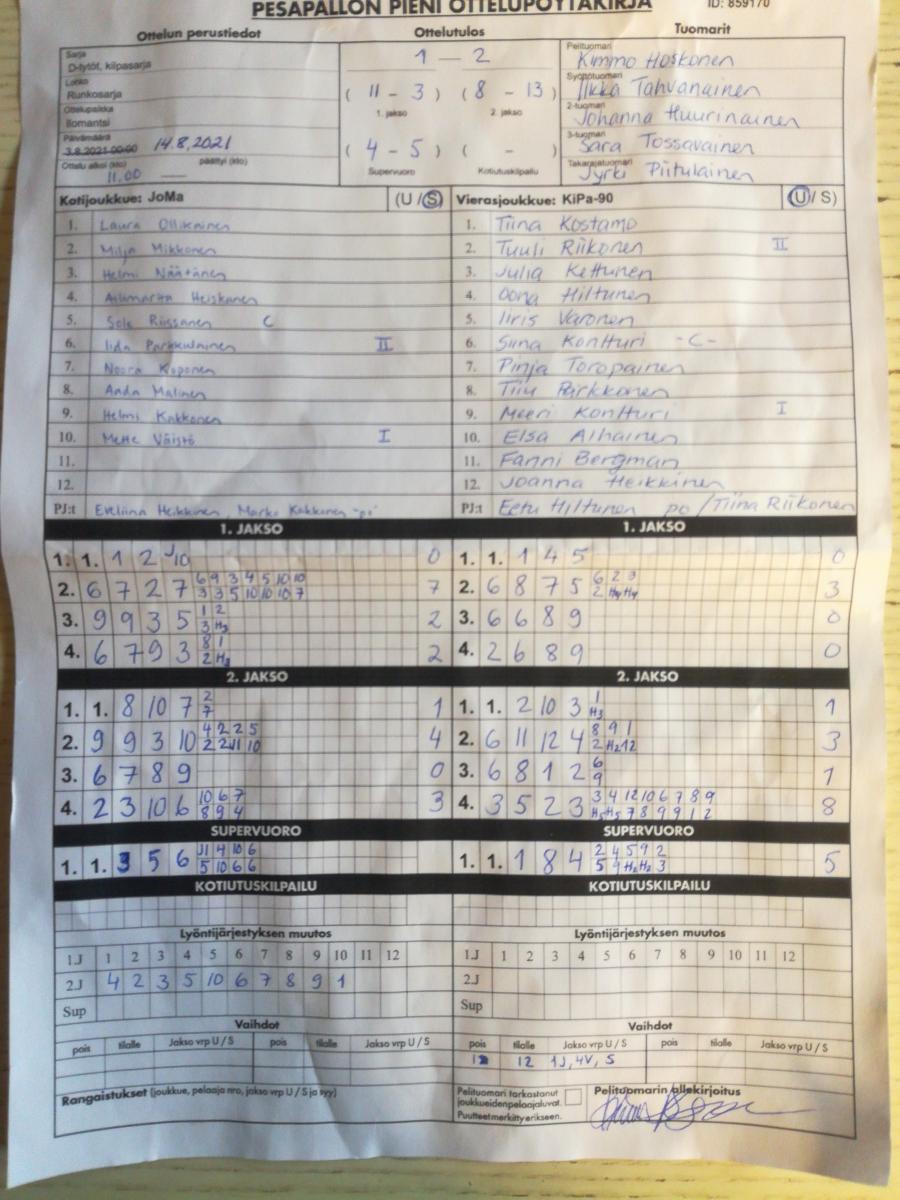 PESÄPALLON PIENI OTTELUPÖYTÄKIRJA ID: 859170
Ottelun perustiedot Ottelutulos Tuomarit
Sarja
D-tytöt, kilpasarja
Lohko
Runkosarja
Ottelupaikka
Ilomantsi
Päivämäärä
3.8.2021 00:00 14.8.2021
Ottelu alkoi (klo) päättyi (klo)
11.00 —
1 — 2
( 11 - 3 ) ( 8 - 13 )
1. jakso 2. jakso
( 4 - 5 ) ( - )
Supervuoro Kotiutuskilpailu
Pelituomari
Kimmo Hoskonen
Syöttötuomari
Ilkka Tahvanainen
2-tuomari
Johanna Huurinainen
3-tuomari
Sara Tossavainen
Takarajatuomari
Jyrki Piitulainen
Kotijoukkue: JoMa (U / S) Vierasjoukkue: KiPa-90 (U / S)
1. Laura Ollikainen 1. Tiina Kostamo
2. Milja Mikkonen 2. Tuuli Riikonen II
3. Helmi Näätänen 3. Julia Kettunen
4. Ailamarita Heiskanen 4. Oona Hiltunen
5. Sole Riissanen C 5. Iiris Varonen
6. Iida Parkkulainen II 6. Siina Kontturi -C-
7. Noora Koponen 7. Pinja Toropainen
8. Aada Malinen 8. Tiiu Parkkonen
9. Helmi Kakkonen 9. Meeri Kontturi I
10. Mette Väistö I 10. Elsa Aihainen
11. 11. Fanni Bergman
12. 12. Joanna Heikkinen
PJ:t Eveliina Heikkinen, Marko Kakkonen -pj- PJ:t Eetu Hiltunen po / Tiina Riikonen
1. JAKSO 1. JAKSO
1. 1. 1 2 10 0 1. 1. 1 4 5 0
2. 6 7 2 7 6 9 3 4 5 10 10 7 2. 6 8 7 5 6 2 3 3
3 3 5 10 10 10 7 2 H4 H4
3. 9 9 3 5 1 2 2 3. 6 6 8 9 0
3 H3
4. 6 7 9 3 8 1 2 4. 2 6 8 9 0
2 H3
2. JAKSO 2. JAKSO
1. 1. 8 10 7 2 1 1. 1. 2 10 3 1 1
7 H3
2. 9 9 3 10 4 2 2 5 4 2. 6 11 12 4 8 9 1 3
2 2 11 10 2 H2 12
3. 6 7 8 9 0 3. 6 8 1 2 6 1
9
4. 2 3 10 6 10 6 7 3 4. 3 5 2 3 3 4 12 10 6 7 8 9 8
8 9 4 H5 H5 7 8 9 9 1 2
SUPERVUORO SUPERVUORO
1. 1. 3 5 6 11 4 10 6 1. 1. 1 8 4 2 4 5 9 2 5
5 10 6 6 5 4 H2 H2 3
KOTIUTUSKILPAILU KOTIUTUSKILPAILU
Lyöntijärjestyksen muutos Lyöntijärjestyksen muutos
1.J 1 2 3 4 5 6 7 8 9 10 11 12 1.J 1 2 3 4 5 6 7 8 9 10 11 12
2.J 4 2 3 5 10 6 7 8 9 1 2.J
Sup Sup
Vaihdot Vaihdot
pois tilalle Jakso vrp U / S pois tilalle Jakso vrp U / S pois tilalle Jakso vrp U / S pois tilalle Jakso vrp U / S
12 1J, 4V, S
Rangaistukset (joukkue, pelaaja nro, jakso vrp U / S ja syy)
Pelituomari tarkastanut
joukkueiden pelaajaluvat.
Puutteet merkitty erikseen.
Pelituomarin allekirjoitus